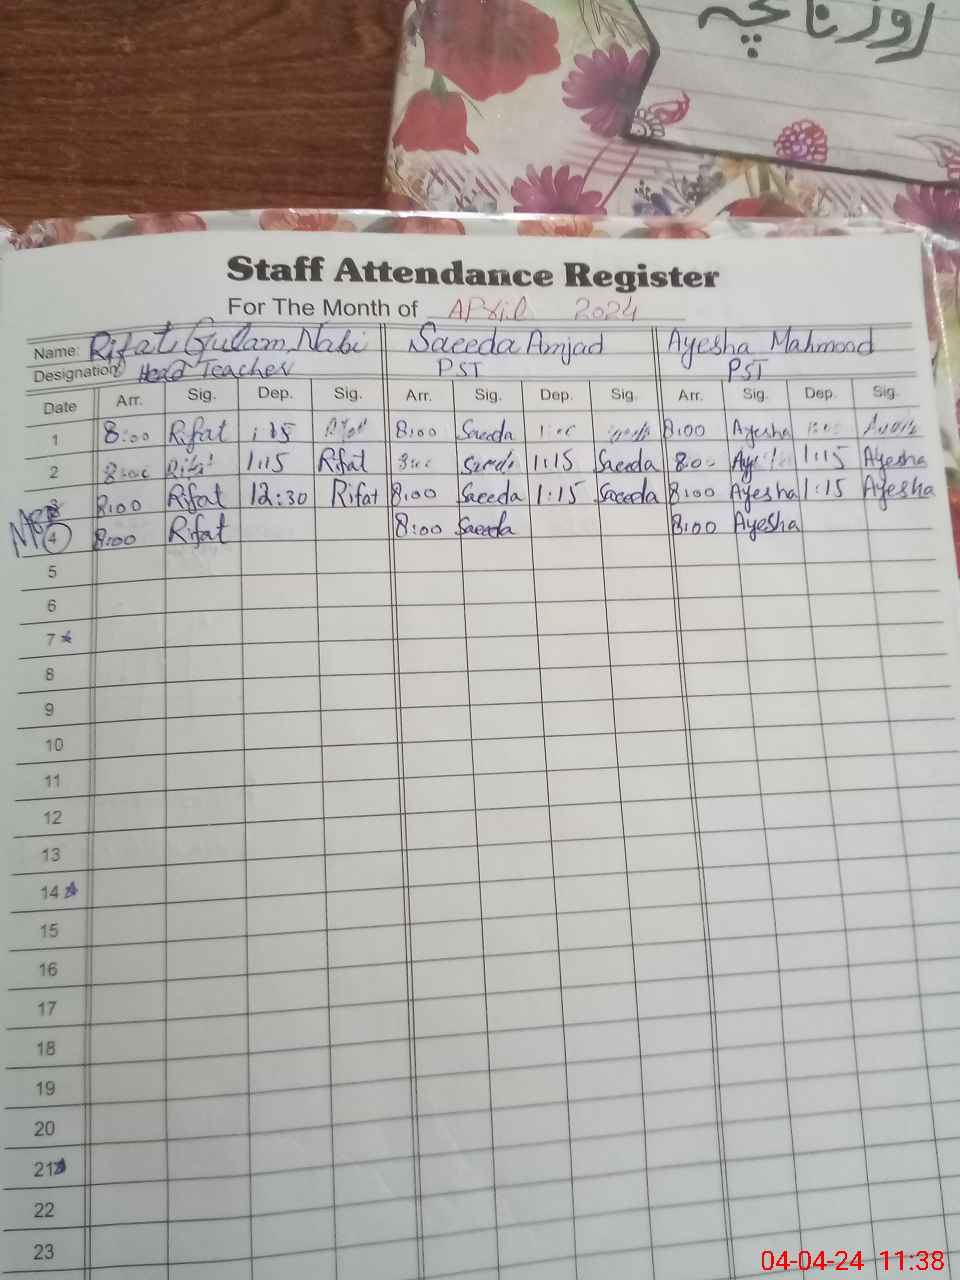 روزنامچہ
Staff Attendance Register
For The Month of April 2024
Name: Rifat Gulam Nabi Saeeda Amjad Ayesha Mahmood
Designation Head Teacher PST PST
Date Arr. Sig. Dep. Sig. Arr. Sig. Dep. Sig. Arr. Sig. Dep. Sig.
1 8:00 Rifat 1:15 8:00 Saeeda 8:00 Ayesha
2 Rifat 1:15 Rifat Saeeda 1:15 Saeeda 8:00 1:15 Ayesha
3 8:00 Rifat 12:30 Rifat 8:00 Saeeda 1:15 Saeeda 8:00 Ayesha 1:15 Ayesha
4 8:00 Rifat 8:00 Saeeda 8:00 Ayesha
5
6
7
8
9
10
11
12
13
14
15
16
17
18
19
20
21
22
23
04-04-24 11:38